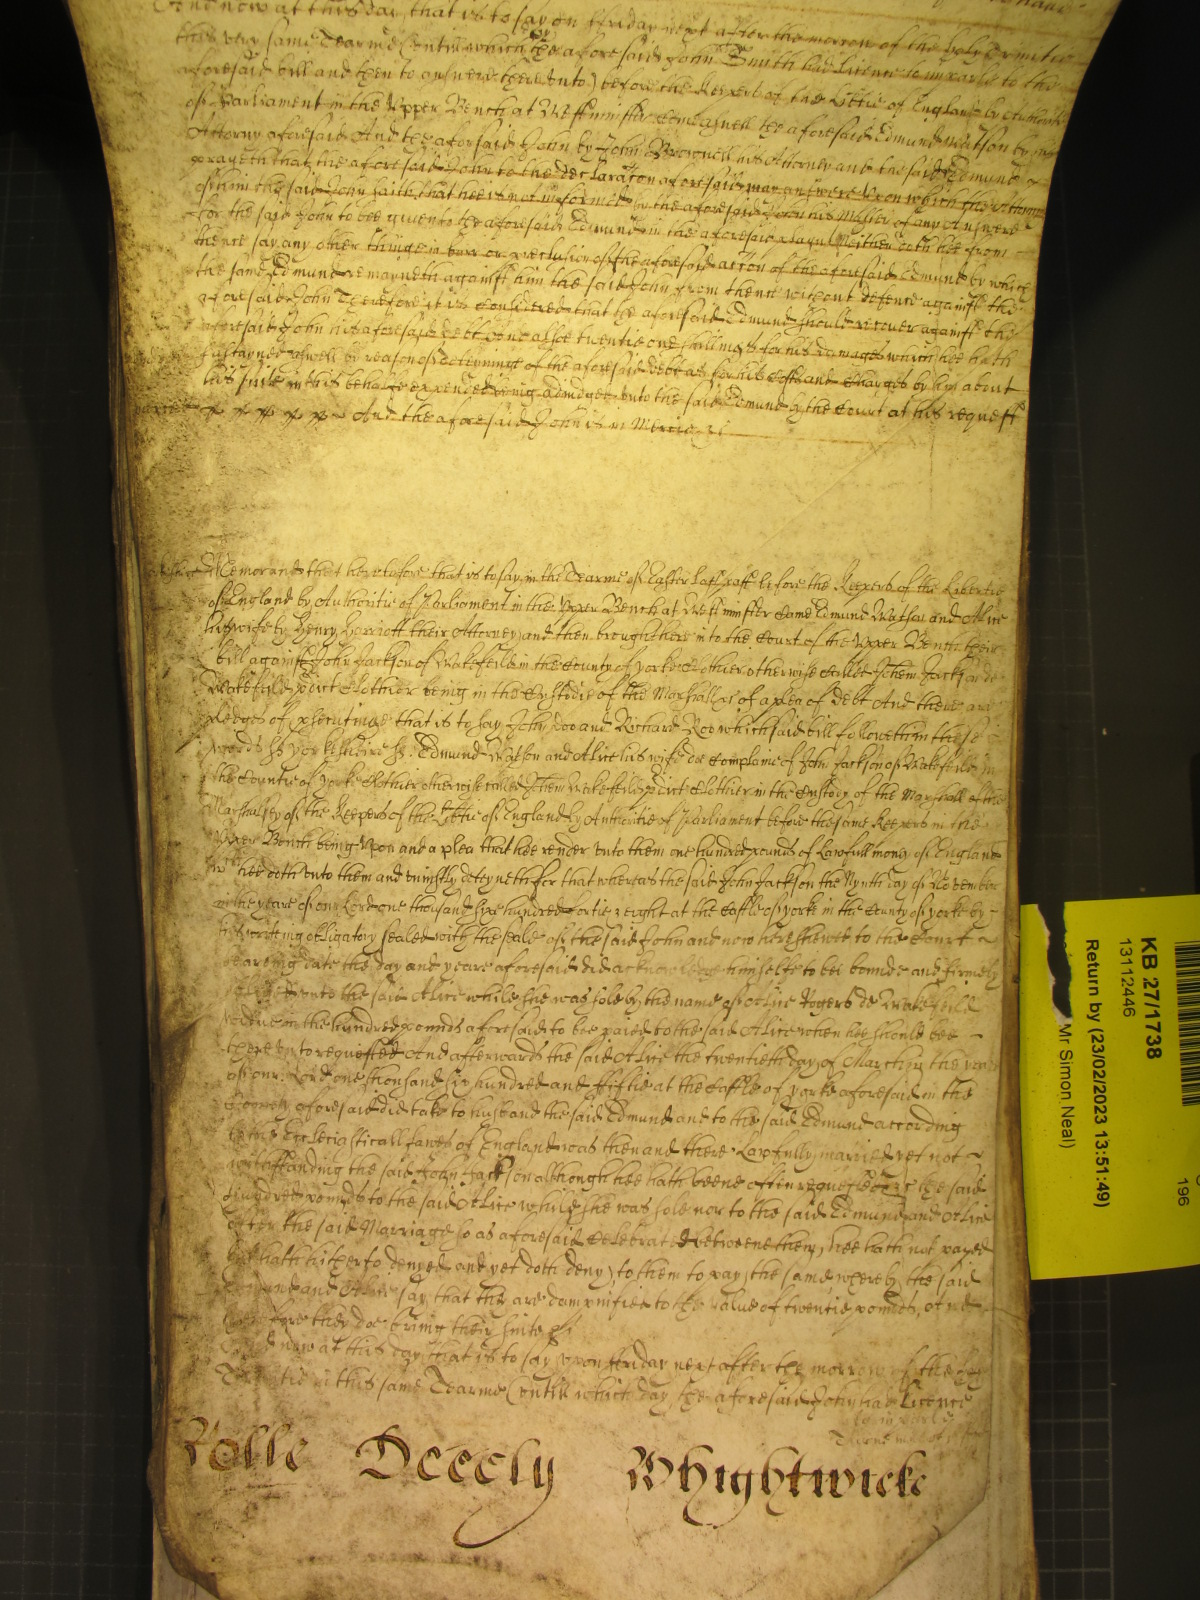 And now at this day that is to say on Friday next after the morrow of the holy Trinitie
this very same Tearme (untill which the aforesaid John Smith had Licence to imparle to the
aforesaid bill and then to answere thereunto) before the Keepers of the Libtie of England by Authoritie
of Parliament in the Upper Bench at Westminster Come aswell the aforesaid Edmund Watson by his
Attorny aforesaid And the aforesaid John by John Brownell his Attorney and the said Edmund
prayeth that the aforesaid John to the declaracon aforesaid may answere Upon which the Attorny
of him the said John saith that hee is not informed by the aforesaid John his Master of any answere
for the said John to bee given to the aforesaid Edmund in the aforesaid plaint Neither doth hee from
thence say any other thinge in barr or preclusion of the aforesaid accon of the aforesaid Edmund by which
the same Edmund remayneth against him the said John from thence without defence against the
aforesaid John Therefore it is Considered that the aforesaid Edmund should recover against the
aforesaid John his aforesaid debt and alsoe twentie one shillings for his damages which hee hath
sustayned aswell by reason of deteyninge of the aforesaid debt as for his Costs and Charges by him about
his suite in this behalfe expended being adiudged unto the said Edmund by the Court at his request
And the aforesaid John is in Mercie &c
Memorand that heretofore that is to say in the Tearme of Easter last past before the Keepers of the Libertie
of England by Authoritie of Parliament in the Upper Bench at Westminster Came Edmund Watson and Alice
his wife by Henry Harriott their Attorney and then brought here into the Court of the Upper Bench their
bill against John Jackson of Wakefeild in the County of yorke Clothier otherwise Called Johem Jackson de
Wakefeild pdict Clothier being in the Custodie of the Marshall &c of a plea of Debt And there are
pledges of psecutinge that is to say John Doo and Richard Roo which said bill followeth in these
words ss yorkeshire ss Edmund Watson and Alice his wife doe Complaine of John Jackson of Wakefeild in
the Countie of yorke Clothier otherwise called Johem Wakefeild pdict Clothier in the Custody of the Marshall of the
Marshalsey of the Keepers of the Libtie of England by Authoritie of Parliament before the same Keepers in the
Upper Bench being Upon and a plea that hee render unto them one hundred pounds of Lawfull mony of England
wch hee oweth unto them and uniustly deteyneth for that whereas the said John Jackson the Nynth day of November
in the yeare of our Lord one thousand six hundred fortie & eight at the Castle of yorke in the County of yorke by
his writing obligatory sealed with the seale of the said John and now here shewed to the Court
beareing date the day and yeare aforesaid did acknowledge himselfe to bee bounde and firmely
unto the said Alice while she was sole by the name of Alice Rogers de Wakefeild
in the hundred pounds aforesaid to bee paied to the said Alice when hee should bee
thereunto requested And afterwards the said Alice the twentieth day of March in the yeare
of our Lord one thousand six hundred and fiftie at the Castle of yorke aforesaid in the
County aforesaid did take to husband the said Edmund and to the said Edmund according
to the Ecclesiasticall lawes of England was then and there Lawfully married yet not
withstanding the said John Jackson although hee hath beene often requested &c the said
hundred pounds to the said Alice while she was sole nor to the said Edmund and Alice
after the said Marriage so as aforesaid Celebrated betweene them hee hath not payed
but hath hitherto denyed and yet doth deny to them to pay the same whereby the said
Edmund and Alice say that they are dampnified to the value of twentie pounds and
therefore they doe bring their suite &c
And now at this day that is to say upon Friday next after the morrow of the holy
Trinitie in this same Tearme (untill which day the aforesaid John had Licence
to imparle
Rolle Dceely Whightwicke
KB 27/1738
13112446
Return by (23/02/2023 13:51:49)
Mr Simon Neal)
196